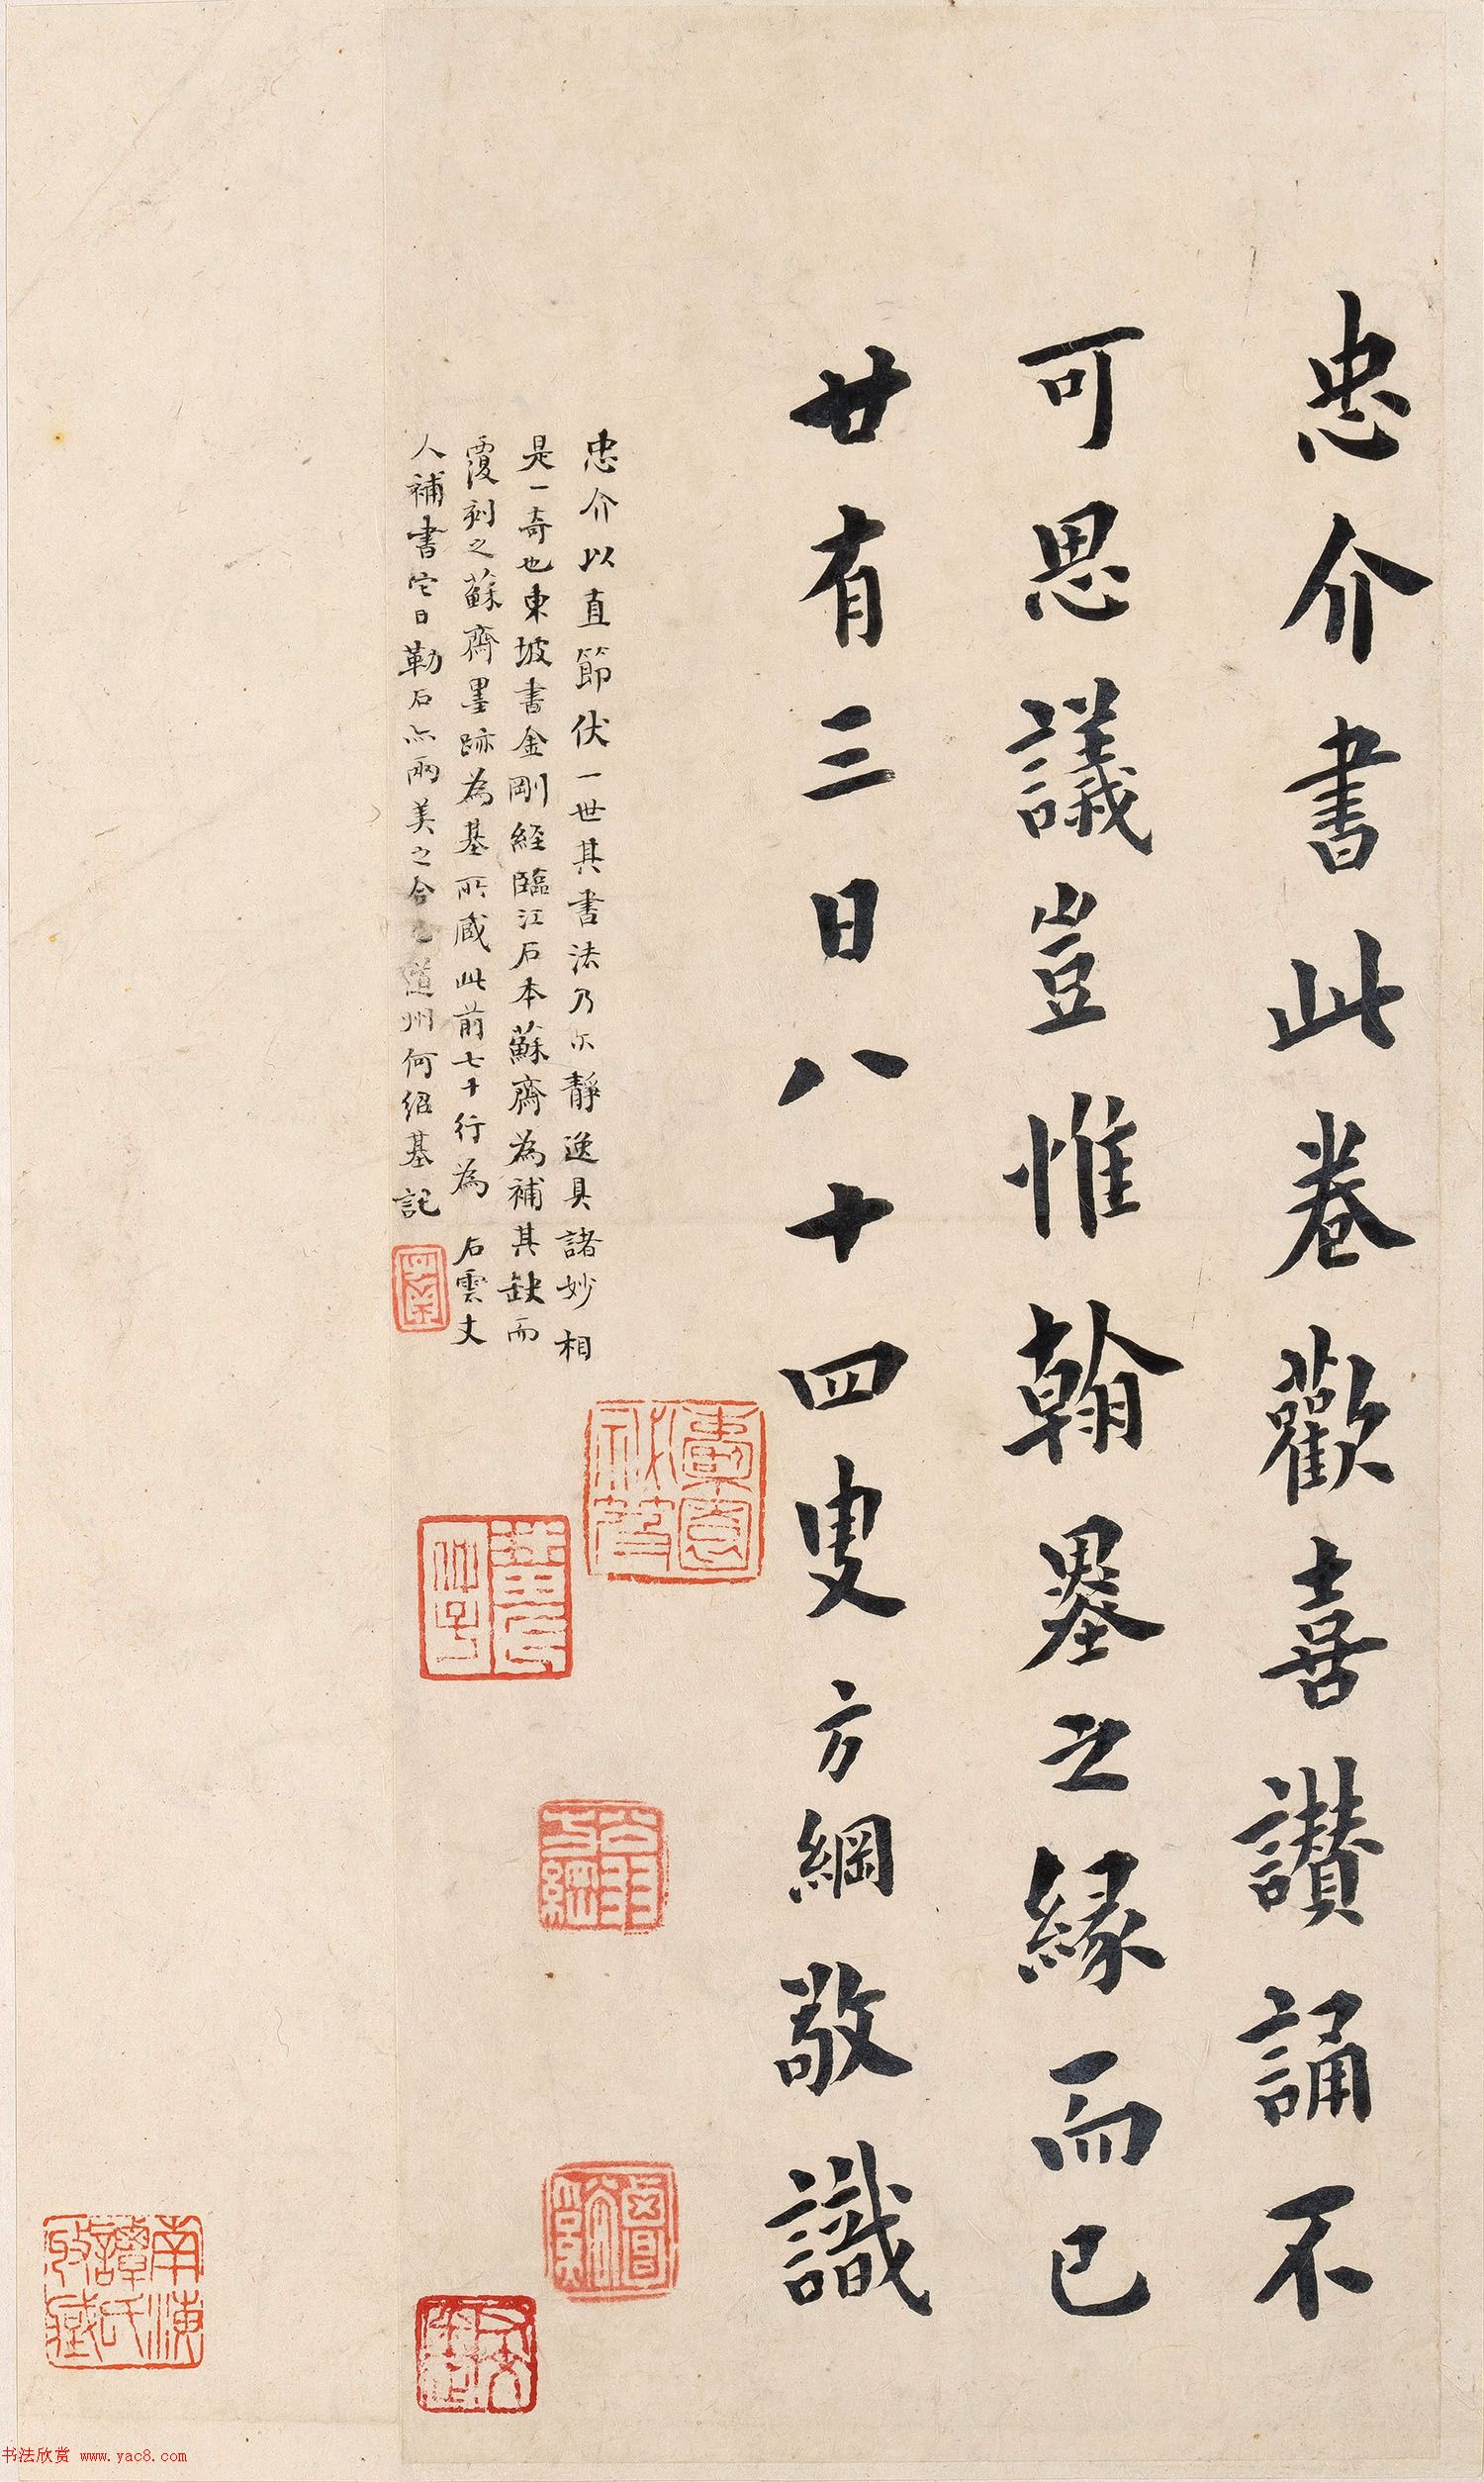 忠介書此卷歡喜讚誦不
可思議豈惟翰墨之緣而已
廿有三日八十四叟方綱敬識
忠介以直節伏一世其書法乃尒靜逸具諸妙相
是一奇也東坡書金剛經臨江石本蘇齋為補其缺而
覆刻之蘇齋墨跡為基所藏此前七十行為石雲丈
人補書它日勒石亦兩美之合也道州何紹基記
南海
譚氏
收藏
书法欣赏 www.yac8.com